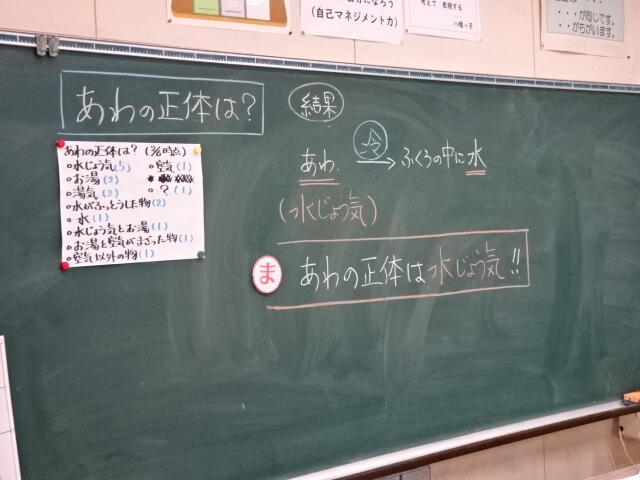 (自己マネジメント力)
考えて 表現する
八幡っ子
・・・が同じです。
・・がちがいます。
あわの正体は?
あわの正体は?
・水じょう気(5)
・空気(1)
・お湯(2)
・湯気(2)
・?(1)
・水がふっとうした物(2)
・水(1)
・水じょう気とお湯(1)
・お湯と空気がまざった物(1)
・空気以外の物(1)
結果
あわ 冷 → ふくろの中に水
(水じょう気)
ま あわの正体は水じょう気!!